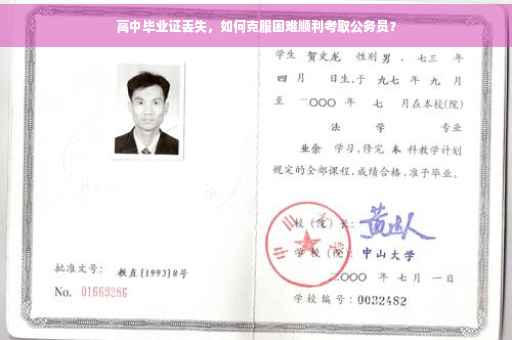 高中毕业证丢失，如何克服困难顺利考取公务员？
学生 贺文龙 性别 男 、七三 年
四 月 日生,于 九七 年 九 月
至 二○○○ 年 七 月在本校(院)
法 学 专业
业余 学习,修完 本 科教学计划
规定的全部课程,成绩合格,准予毕业。
校 (院) 长:
学 校 (院): 中山大学
批准文号: 教直[1993]8号
二○○○ 年 七 月 一 日
No. 01669286
学校编号: 0032482